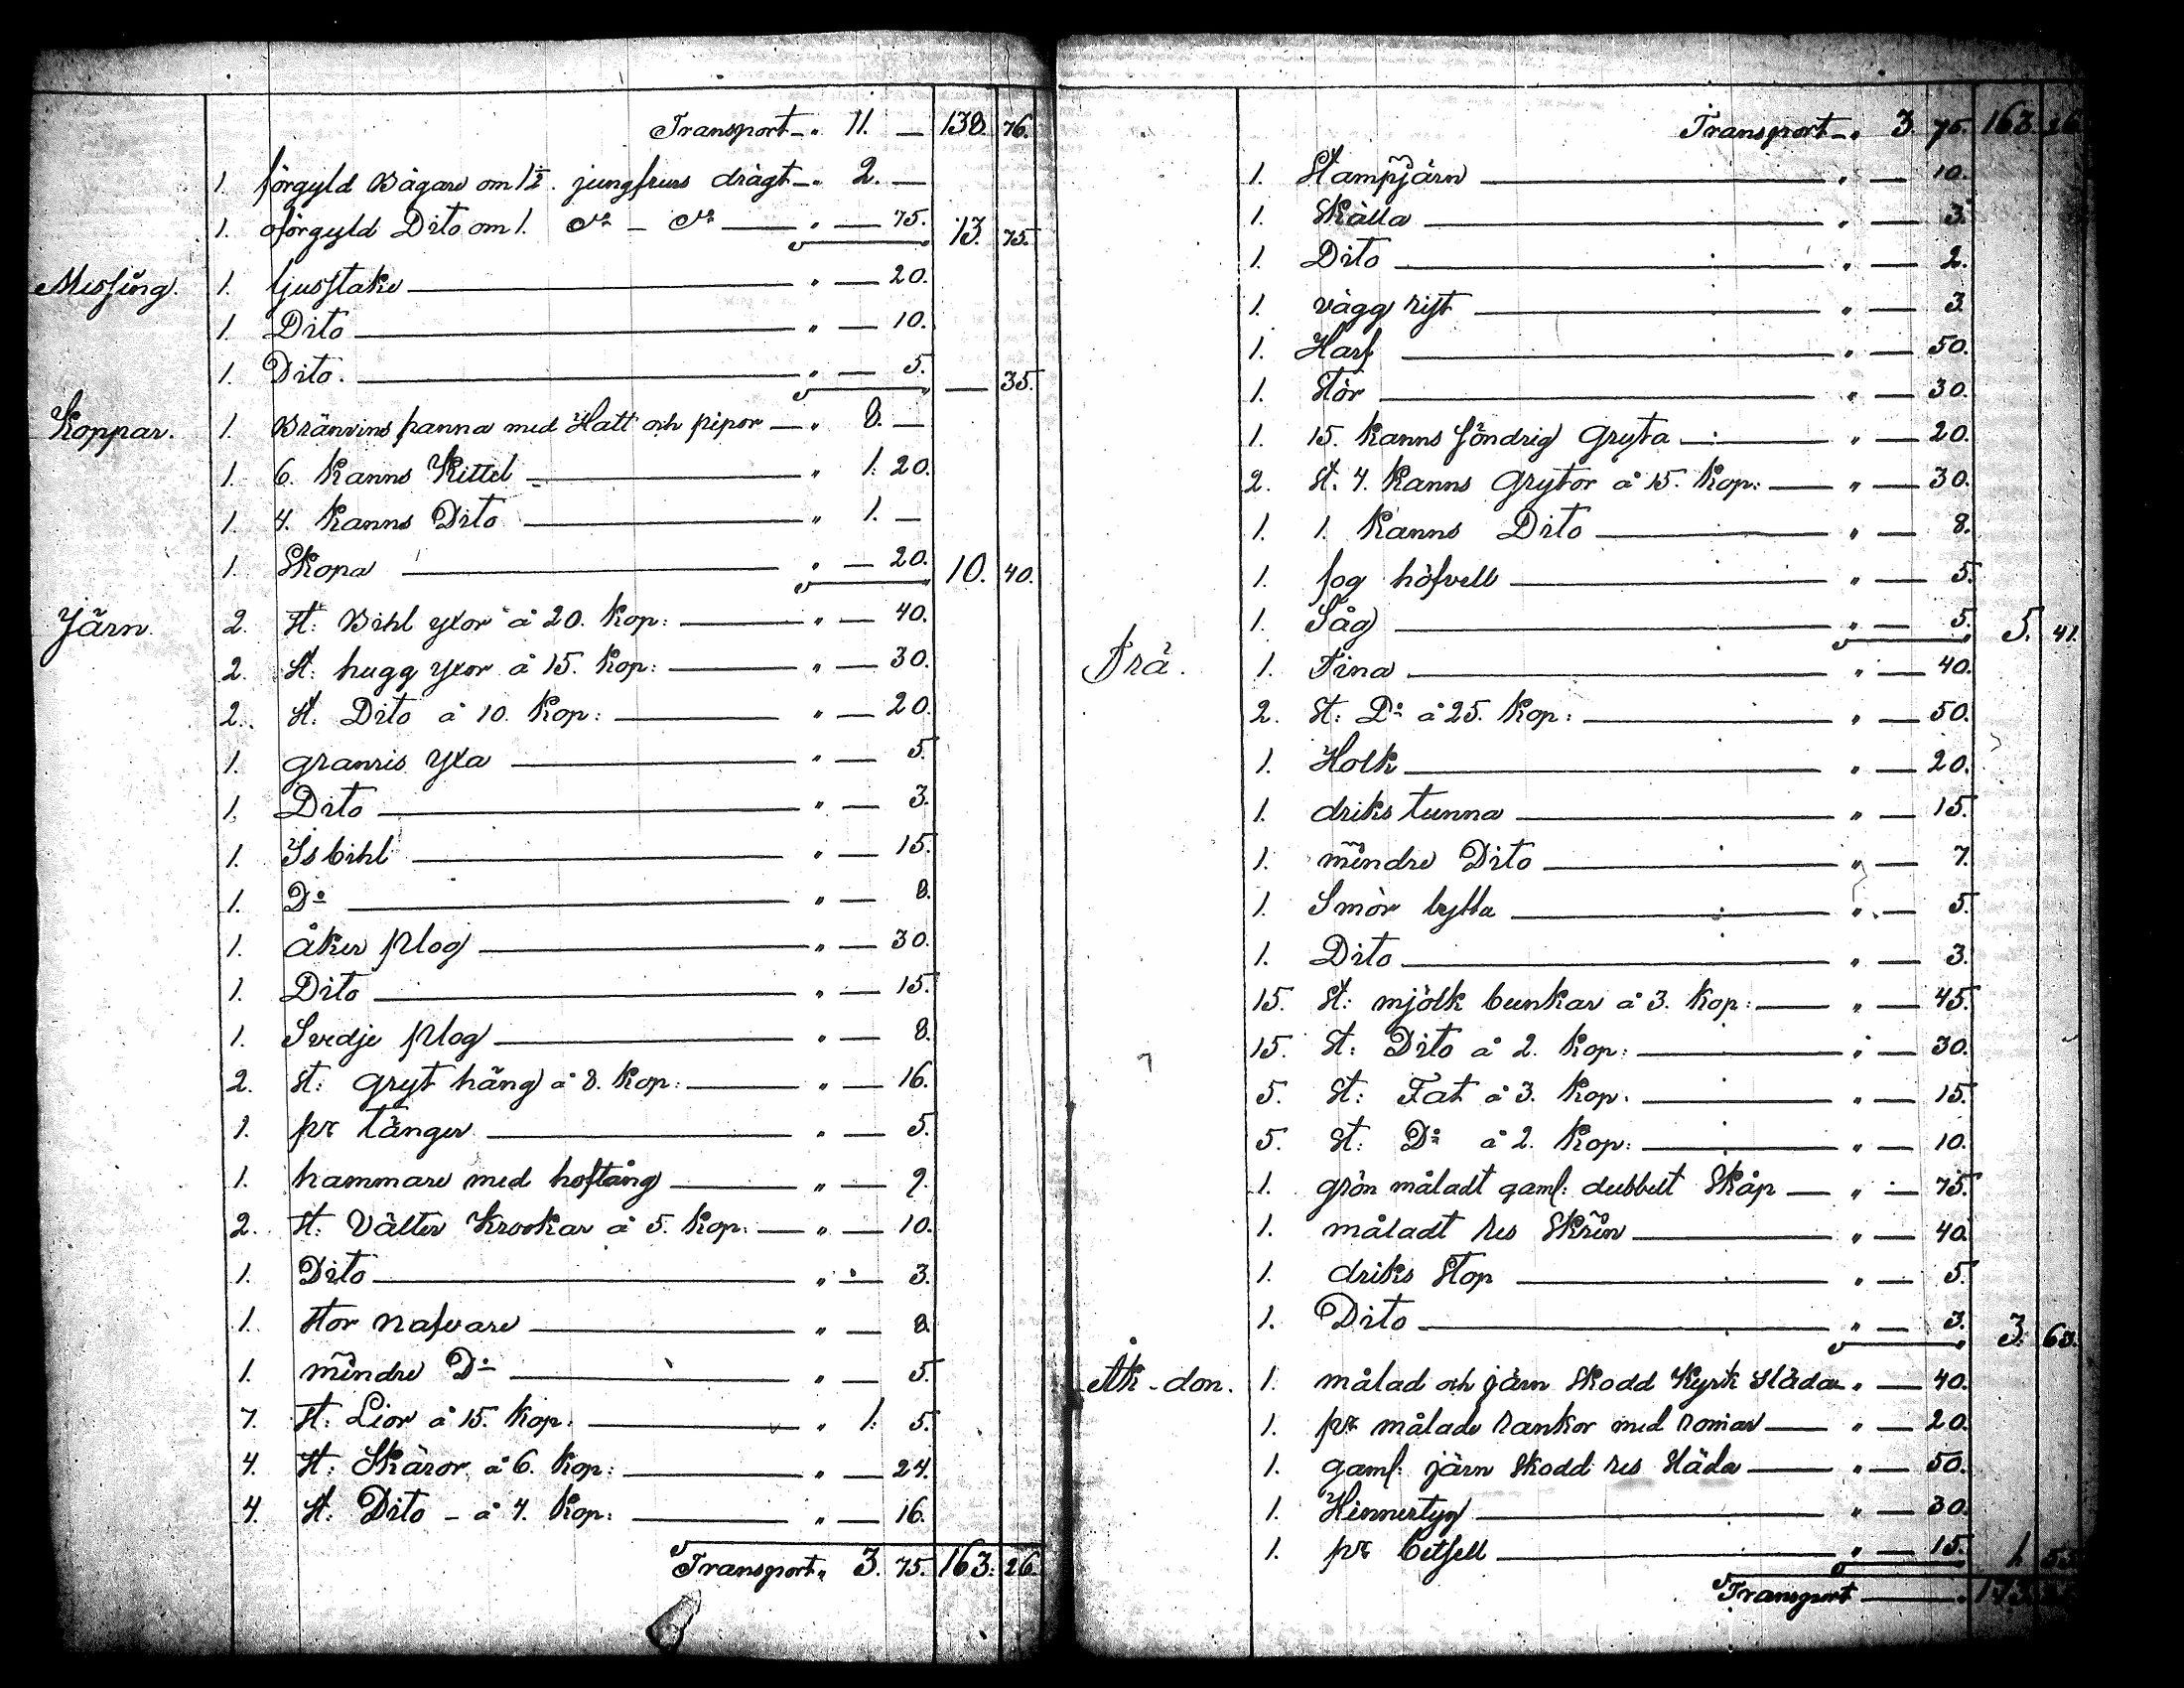 Transport - " 11. — 138. 76.
1. förgyld Bägare om 1½. jungfrurs drägt - " 2. —
1. oförgyld Dito om 1. do - do — " — 75. 13. 75.
Messing. 1. ljusstake — " — 20.
1. Dito — " — 10.
1. Dito. — " — 5. — 35.
Koppar. 1. Bränvins panna med Hatt och pipor — " 8. —
1. 6. Kanns Kittel — " 1. 20.
1. 4. Kanns Dito — " 1. —
1. Skopa — " — 20. 10. 40.
Järn. 2. st: Bihl yxor à 20. Kop: — " — 40.
2. st: hugg yxor à 15. Kop: — " — 30.
2. st: Dito à 10. Kop: — " — 20.
1. granris yxa — " — 5.
1. Dito — " — 3.
1. Isbihl — " — 15.
1. Do — " — 8.
1. åker plog — " — 30.
1. Dito — " — 15.
1. Svedje plog — " — 8.
2. st: gryt häng à 8. Kop: — " — 16.
1. pr tänger — " — 5.
1. hammare med hoftång — " — 9.
2. st: Välter Krookar à 5. Kop: — " — 10.
1. Dito — " — 3.
1. stor nafvare — " — 8.
1. mindre Do — " — 5.
7. st: Lior à 15. Kop. — " 1. 5.
4. st: Skäror à 6. Kop: — " — 24.
4. st: Dito - à 4. Kop: — " — 16.
Transport " 3. 75. 163. 26.
Transport - " 3. 75. 163. 26
1. Stampjärn — " — 10.
1. Skälla — " — 3.
1. Dito — " — 2.
1. vägg rist — " — 3.
1. Harf — " — 50.
1. Stör — " — 30.
1. 15. Kanns söndrig Gryta — " — 20.
2. st. 4. Kanns Grytor à 15. Kop: — " — 30.
1. 1. Kanns Dito — " — 8.
1. fog höfvell — " — 5.
1. Såg — " — 5. 5. 41.
Trä. 1. Tina — " — 40.
2. St: Do à 25. Kop: — " — 50.
1. Holk — " — 20.
1. driks tunna — " — 15.
1. mindre Dito — " — 7.
1. Smör bytta — " — 5.
1. Dito — " — 3.
15. St: mjölk bunkar à 3. Kop: — " — 45.
15. St: Dito à 2. Kop: — " — 30.
5. St: Fat à 3. Kop. — " — 15.
5. St: Do à 2. Kop: — " — 10.
1. grön måladt gaml: dubbelt Skåp — " — 75.
1. måladt res Skrin — " — 40.
1. driks Stop — " — 5.
1. Dito — " — 3. 3. 63.
Åk-don. 1. målad och järn Skodd Kyrk Släda " — 40.
1. pr målade rankor med romar — " — 20.
1. gaml: järn Skodd res Släda — " — 50.
1. Hinnertyg — " — 30.
1. pr betsell — " — 15. 1. 55.
Transport — "